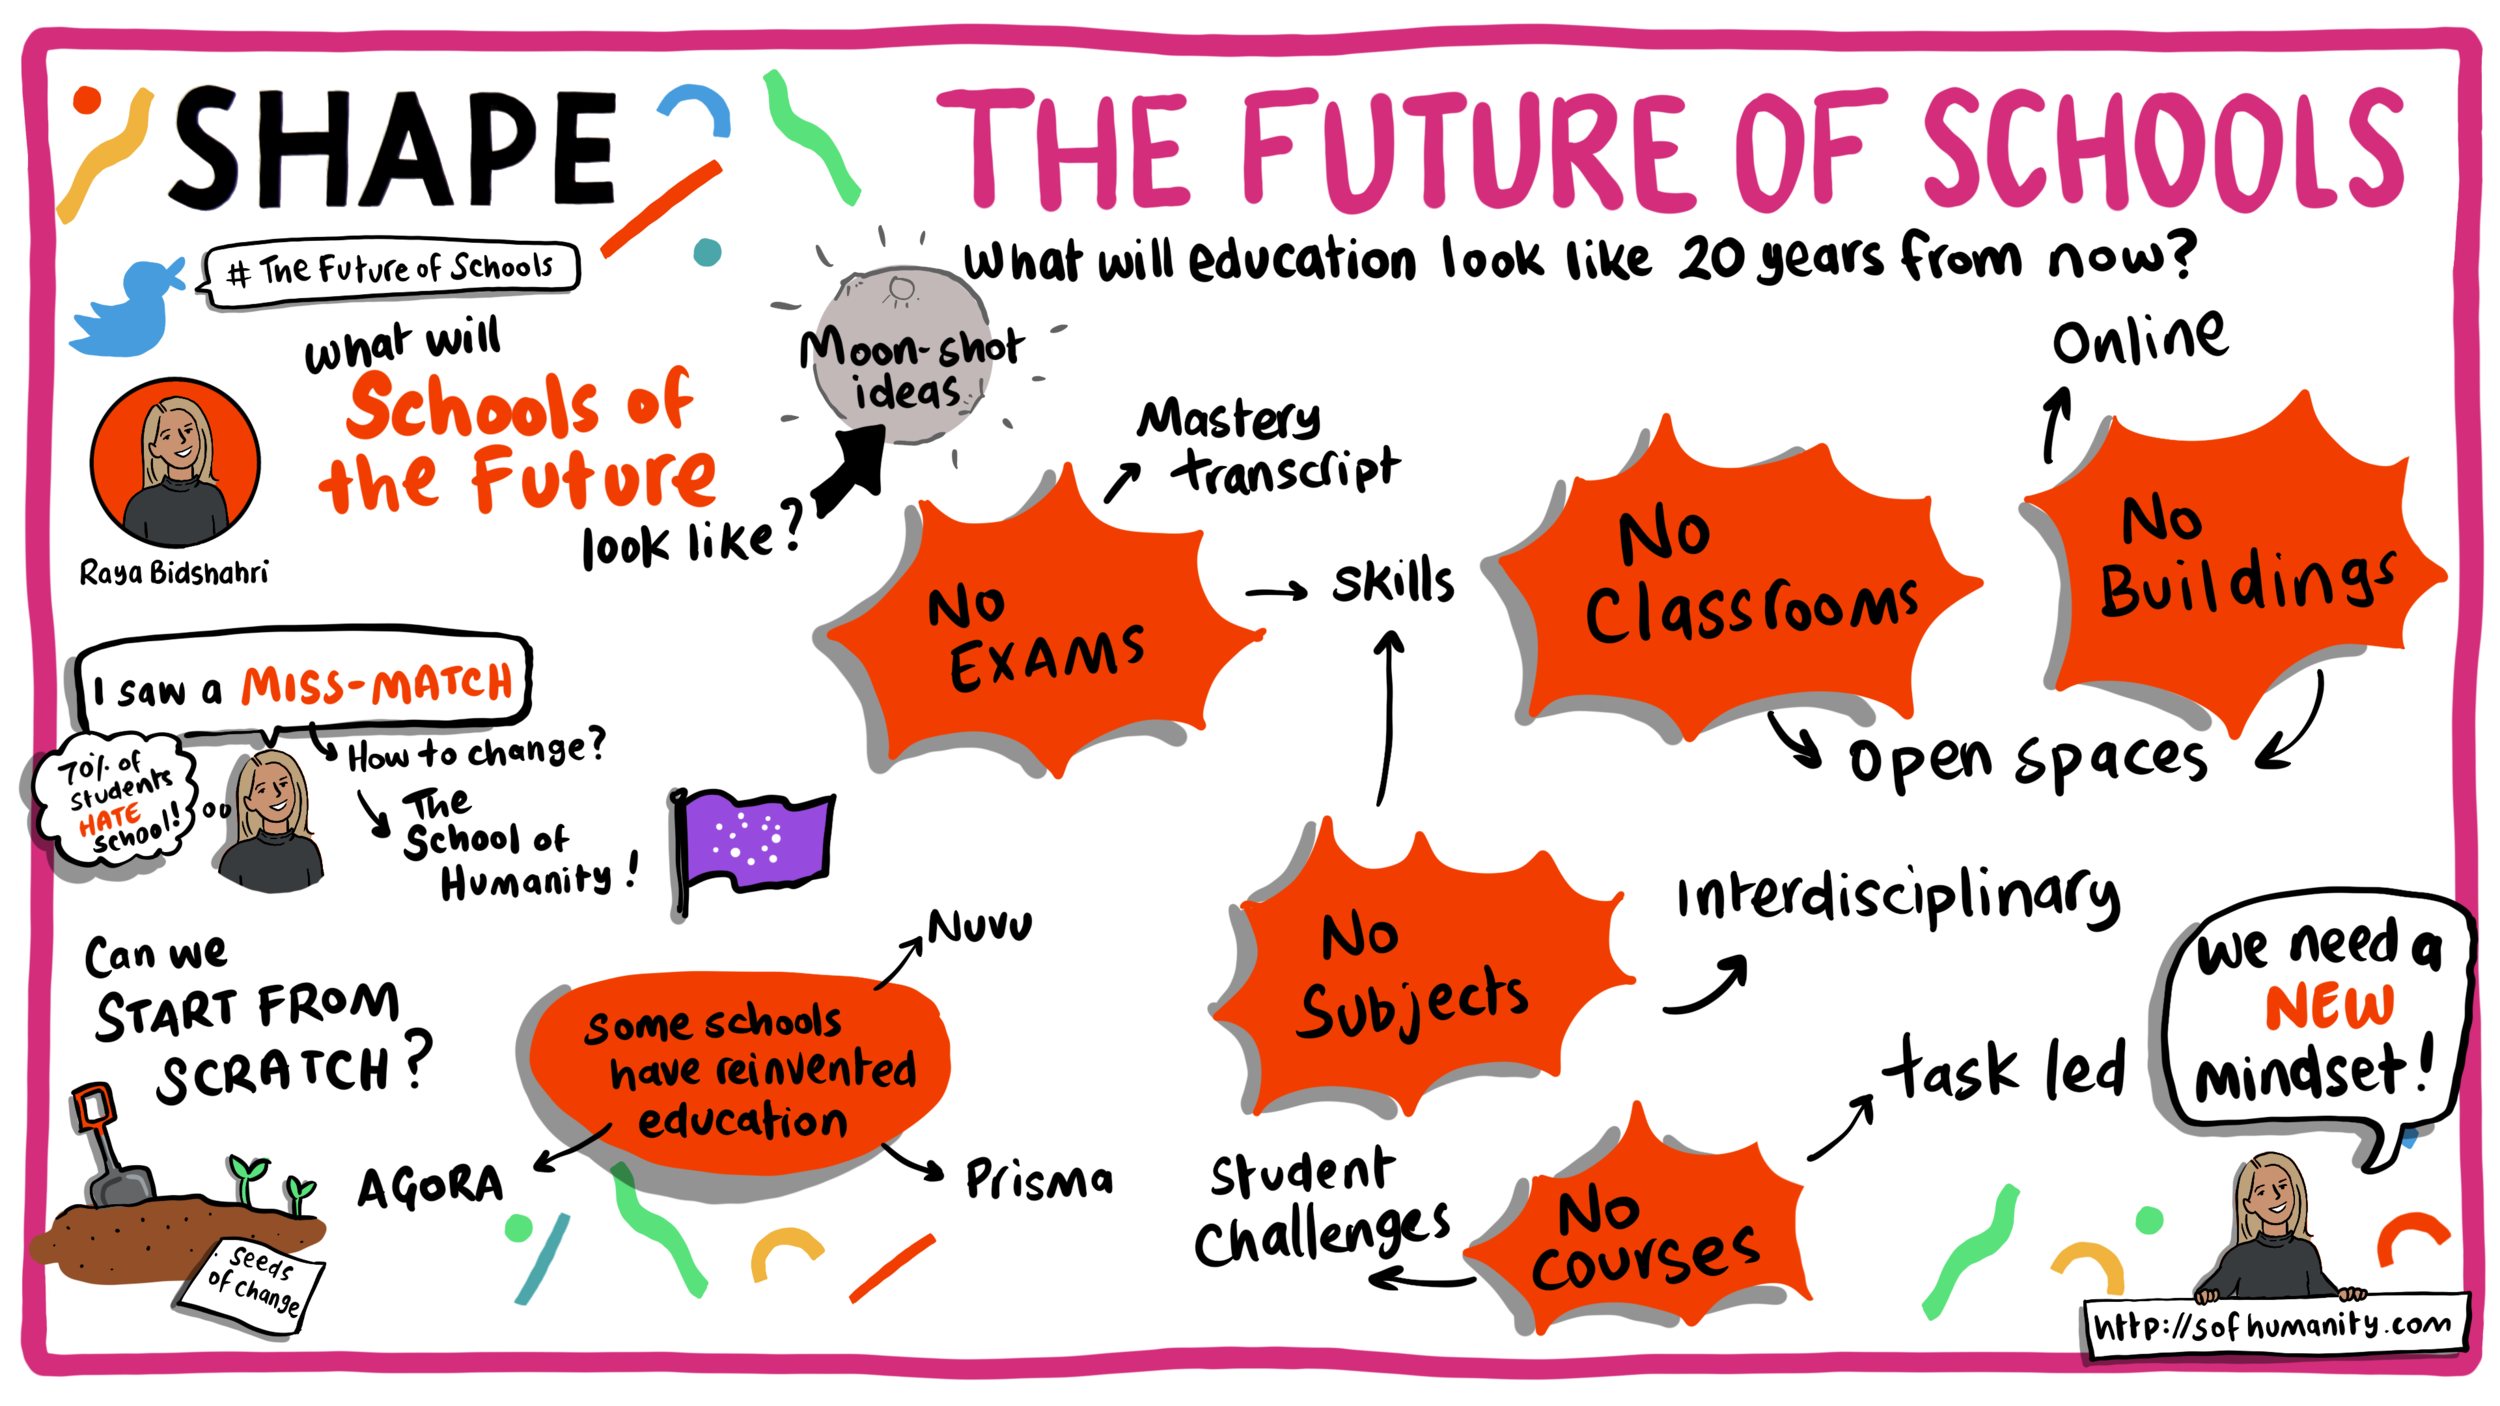 SHAPE
THE FUTURE OF SCHOOLS
# The Future of Schools
What will education look like 20 years from now?
What will
Schools of
the Future
look like?
Raya Bidshahri
Moon-shot
ideas
No
EXAMS
Mastery
transcript
skills
No
Classrooms
No
Buildings
Online
Open spaces
I saw a MISS-MATCH
70% of
students
HATE
school!!
How to change?
The
School of
Humanity!
Can we
START FROM
SCRATCH?
seeds
of change
some schools
have reinvented
education
Nuvu
AGORA
Prisma
No
Subjects
Interdisciplinary
No
courses
task led
Student
Challenges
We need a
NEW
mindset!
http://sofhumanity.com